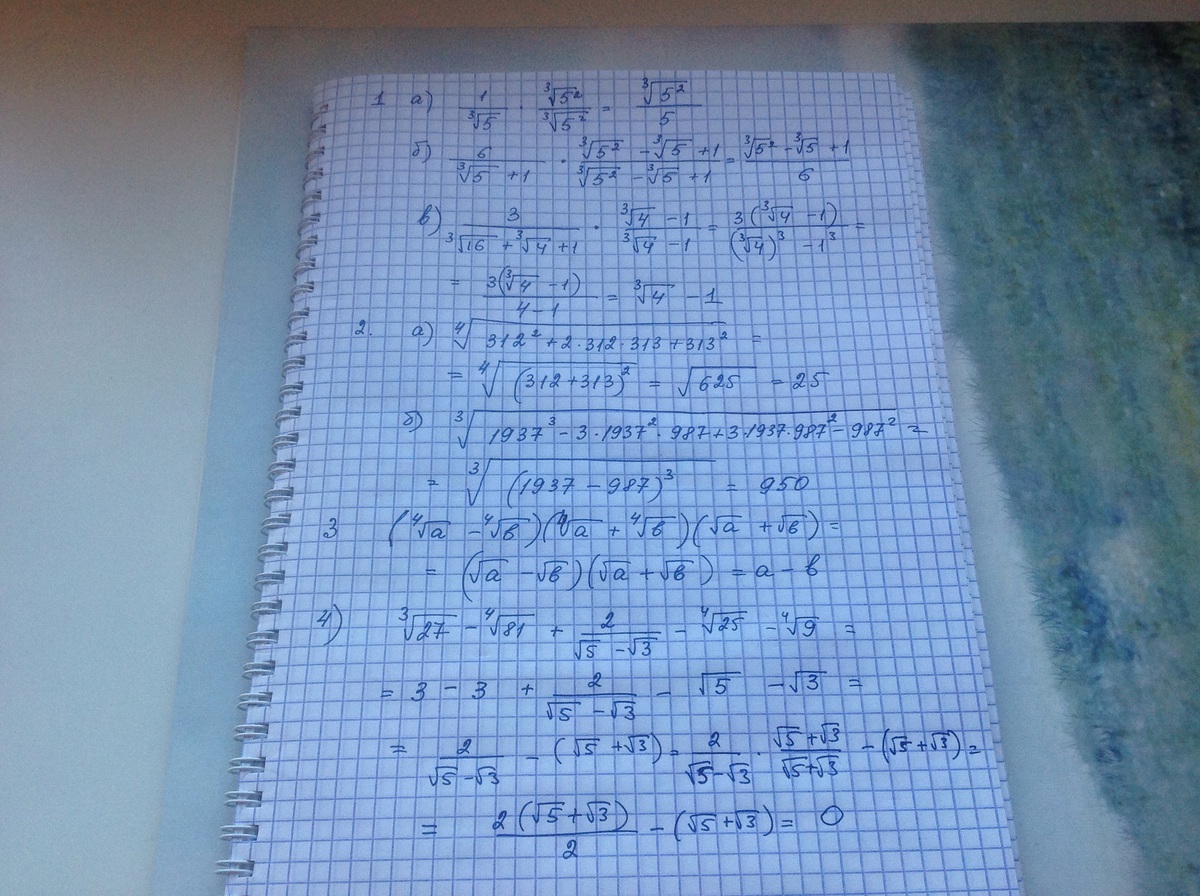 1 а) 1/∛5 · ∛5²/∛5² = ∛5²/5
б) 6/(∛5 + 1) · (∛5² - ∛5 + 1)/(∛5² - ∛5 + 1) = (∛5² - ∛5 + 1)/6
в) 3/(∛16 + ∛4 + 1) · (∛4 - 1)/(∛4 - 1) = 3(∛4 - 1)/((∛4)³ - 1³) =
= 3(∛4 - 1)/(4 - 1) = ∛4 - 1
2. а) ∜(312² + 2·312·313 + 313²) =
= ∜((312+313)²) = √625 = 25
б) ∛(1937³ - 3·1937²·987 + 3·1937·987² - 987²) =
= ∛((1937 - 987)³) = 950
3 (∜a - ∜b)(∜a + ∜b)(√a + √b) =
= (√a - √b)(√a + √b) = a - b
4) ∛27 - ∜81 + 2/(√5 - √3) - ∜25 - ∜9 =
= 3 - 3 + 2/(√5 - √3) - √5 - √3 =
= 2/(√5-√3) - (√5 + √3) = 2/(√5-√3) · (√5+√3)/(√5+√3) - (√5+√3) =
= 2(√5+√3)/2 - (√5+√3) = 0